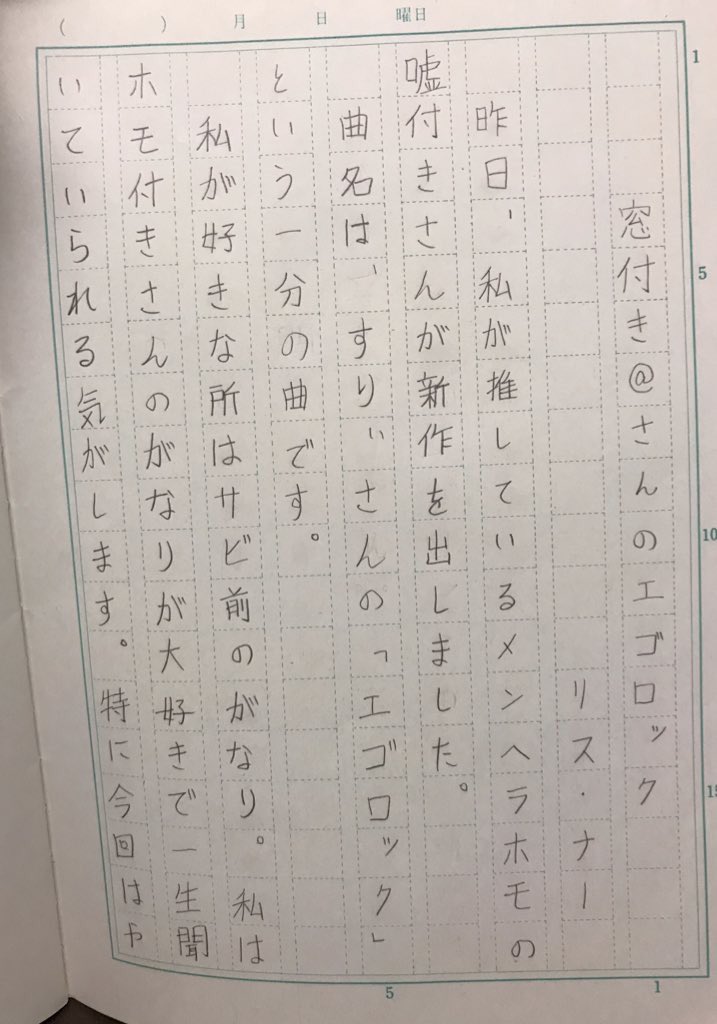 ( ) 月 日 曜日
窓付き@さんのエゴロック
リス・ナー
昨日、私が推しているメンヘラホモの
嘘付きさんが新作を出しました。
曲名は、すりぃさんの「エゴロック」
という一分の曲です。
私が好きな所はサビ前のがなり。私は
ホモ付きさんのがなりが大好きで一生聞
いていられる気がします。特に今回はや
1
5
10
15
5
1